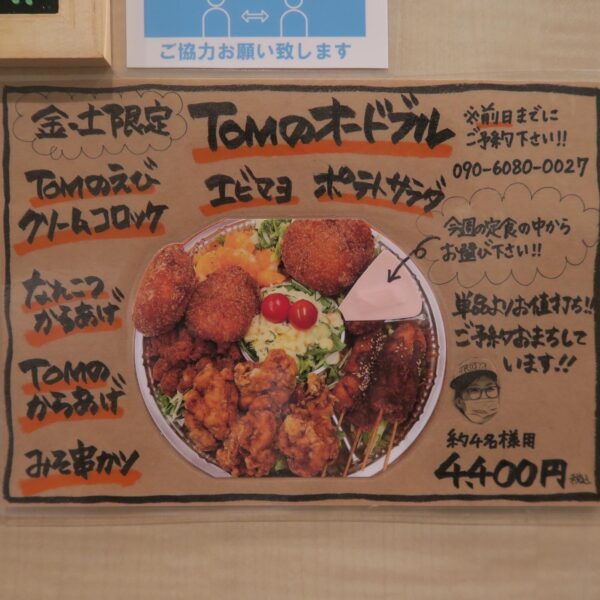 ご協力お願い致します
金・土限定
TOMのオードブル
※前日までに
ご予約下さい!!
090-6080-0027
TOMのえび
クリームコロッケ
エビマヨ ポテトサラダ
今週の定食の中から
お選び下さい!!
なんこつ
からあげ
単品よりお値打ち!!
ご予約おまちして
います!!
TOMの
からあげ
みそ串かつ
約4名様用
4,400円